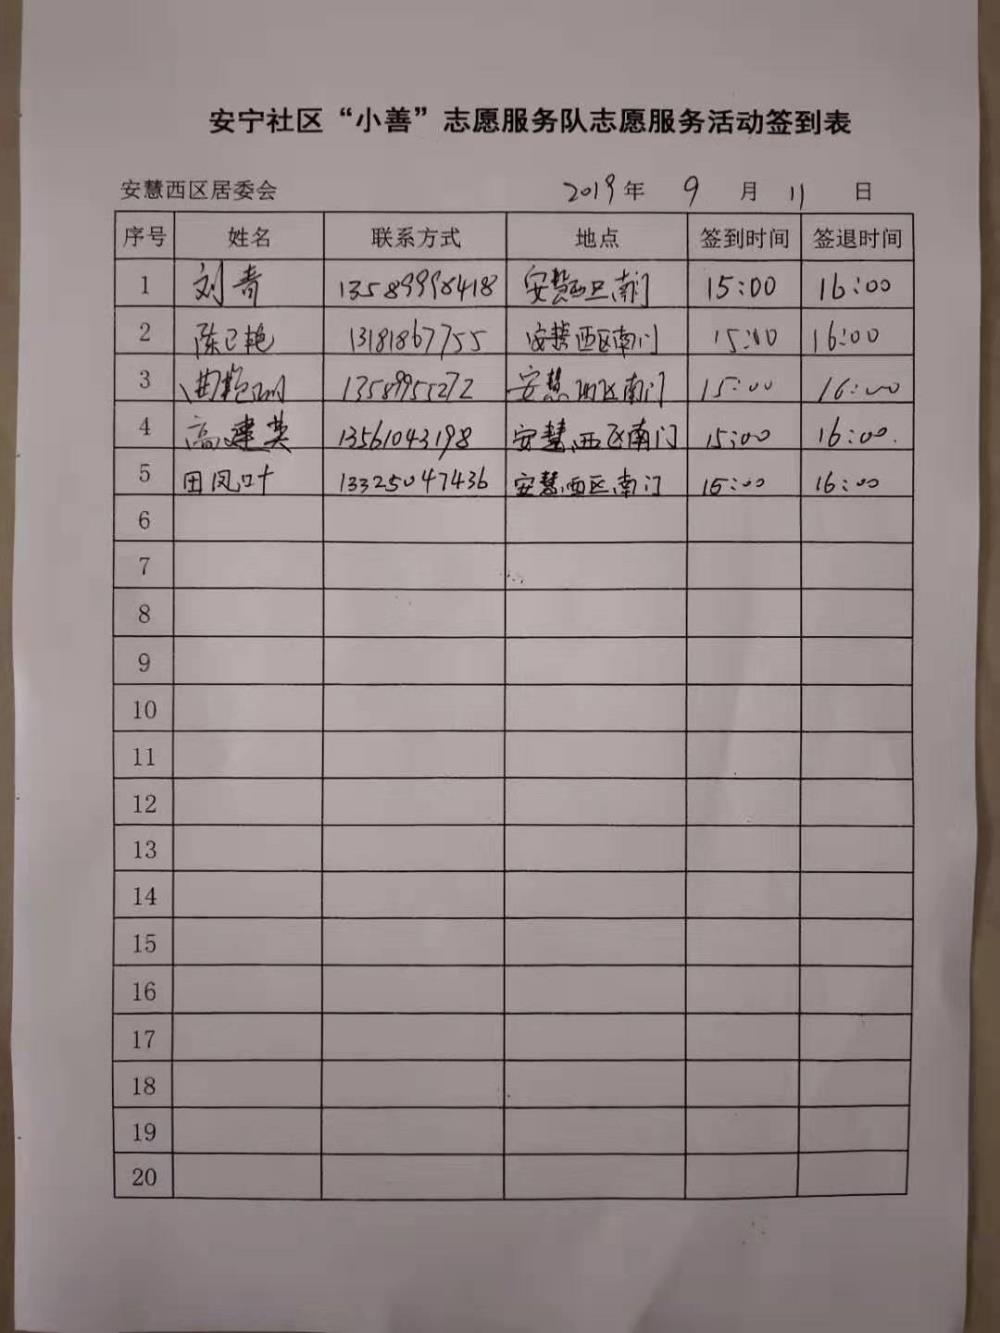 安宁社区“小善”志愿服务队志愿服务活动签到表
安慧西区居委会 2019年 9 月 11 日
序号 姓名 联系方式 地点 签到时间 签退时间
1 刘青 安慧西区南门 15:00 16:00
2 陈已艳 13181867755 安慧西区南门 15:00 16:00
3 13589955272 安慧西区南门 15:00 16:00
4 高建英 13561043198 安慧西区南门 15:00 16:00.
5 田凤叶 13325047436 安慧西区南门 15:00 16:00
6
7
8
9
10
11
12
13
14
15
16
17
18
19
20